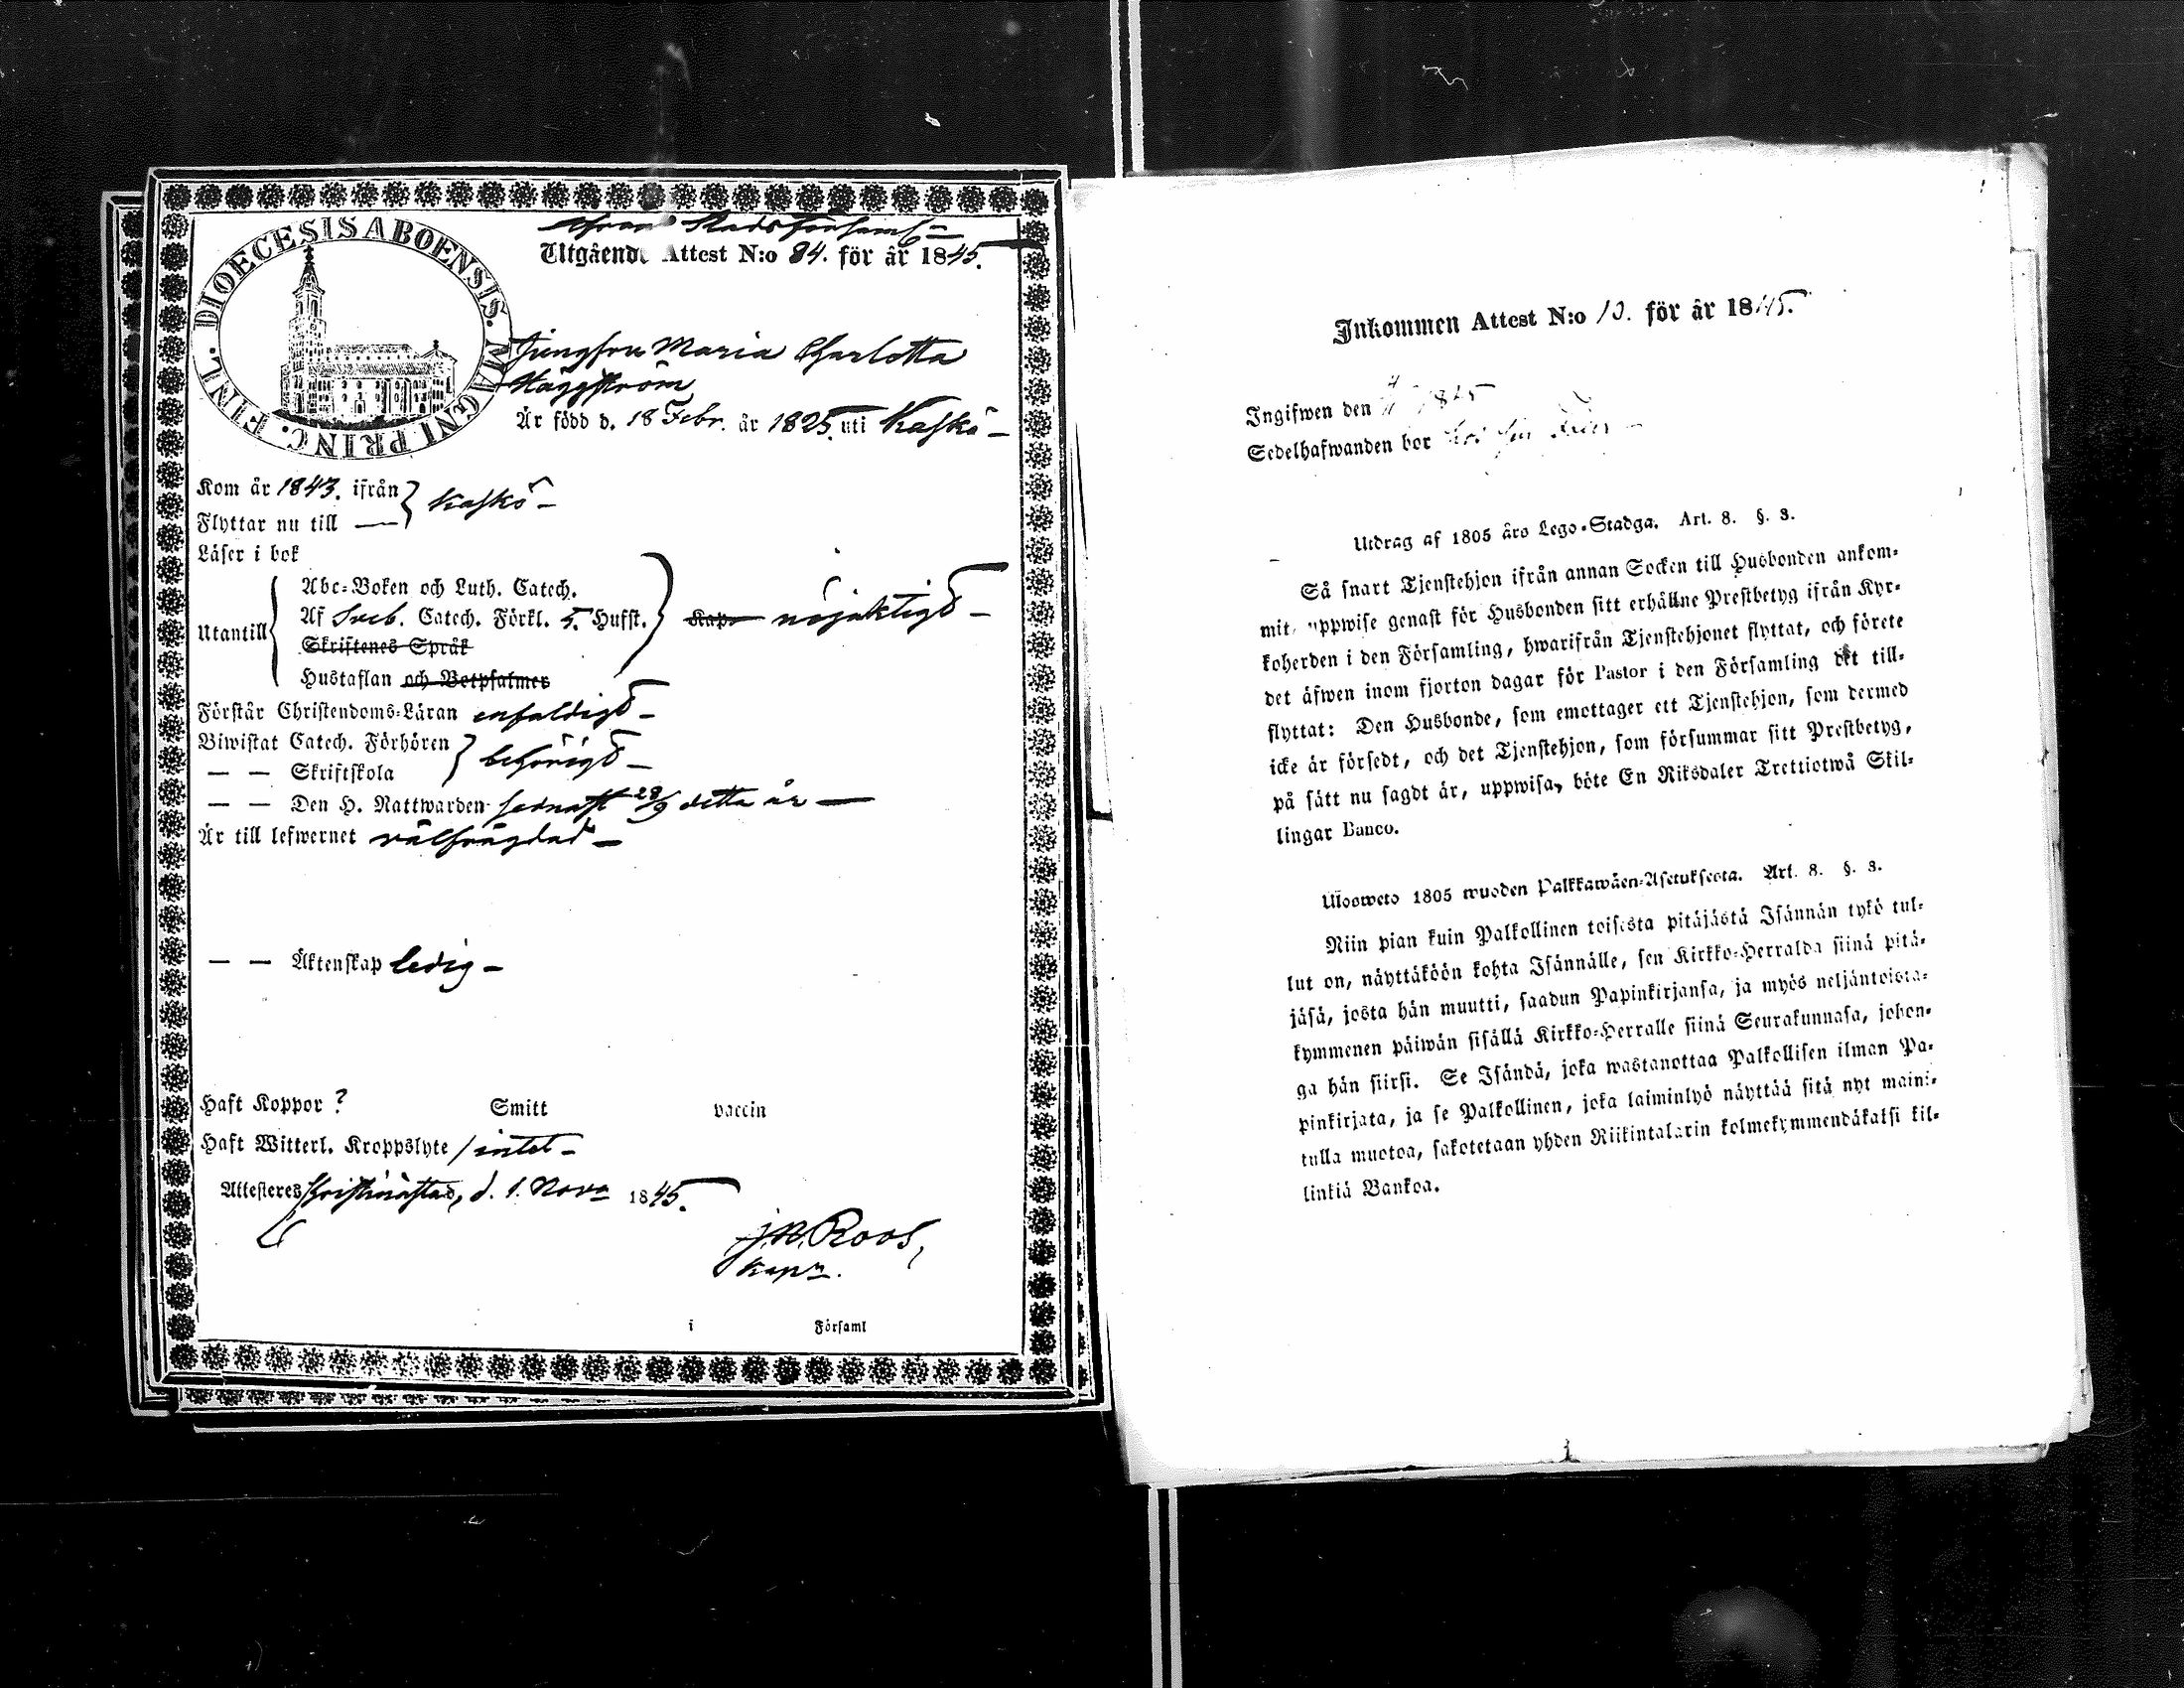 DIOECESIS ABOENSIS. MAGNI PRINC. FINL.
Stadsförsaml
Utgående Attest N:o 84. för år 1845.
Jungfru Maria Charlotta
Häggström
Är född d. 18 Febr. år 1825. uti Kaskö
Kom år 1843. ifrån } Kaskö
Flyttar nu till
Läser i bok
Utantill
Abc-Boken och Luth. Catech.
Af Sveb. Catech. Förkl. 5. Hufst. nöjaktigt
Skriftenes Språk
Hustaflan och Botpsalmer
Förstår Christendoms-Läran enfaldigt
Biwistat Catech. Förhören
— — Skriftskola } behörigt
— — Den H. Nattwarden sednast 28/9 detta år
Är till lefwernet välfrägdad
— — Äktenskap ledig
Haft Koppor ? Smitt vaccin
Haft Witterl. Kroppslyte / intet
Attesteres Christinæstad, d. 1. Nov. 1845.
J.N. Roos,
Kapn.
i Församl
Inkommen Attest N:o 10. för år 1845.
Ingifwen den
Sedelhafwanden bor
Utdrag af 1805 års Lego-Stadga. Art. 8. §. 3.
Så snart Tjenstehjon ifrån annan Socken till Husbonden ankom-
mit, uppwise genast för Husbonden sitt erhållne Prestbetyg ifrån Kyr-
koherden i den Församling, hwarifrån Tjenstehjonet flyttat, och förete
det äfwen inom fjorton dagar för Pastor i den Församling det till-
flyttat: Den Husbonde, som emottager ett Tjenstehjon, som dermed
icke är försedt, och det Tjenstehjon, som försummar sitt Prestbetyg,
på sätt nu sagdt är, uppwisa, böte En Riksdaler Trettiotwå Skil-
lingar Banco.
Ulosweto 1805 wuoden Palkkawäen-Asetuksesta. Art. 8. §. 3.
Niin pian kuin Palkollinen toisesta pitäjästä Isännän tykö tul-
lut on, näyttäköön kohta Isännälle, sen Kirkko-Herralda siinä pitä-
jäsä, josta hän muutti, saadun Papinkirjansa, ja myös neljäntoista-
kymmenen päiwän sisällä Kirkko-Herralle siinä Seurakunnasa, johon-
ga hän siirsi. Se Isändä, joka wastanottaa Palkollisen ilman Pa-
pinkirjata, ja se Palkollinen, joka laiminlyö näyttää sitä nyt maini-
tulla muotoa, sakotetaan yhden Riikintalarin kolmekymmendäkaksi kil-
linkiä Bankoa.